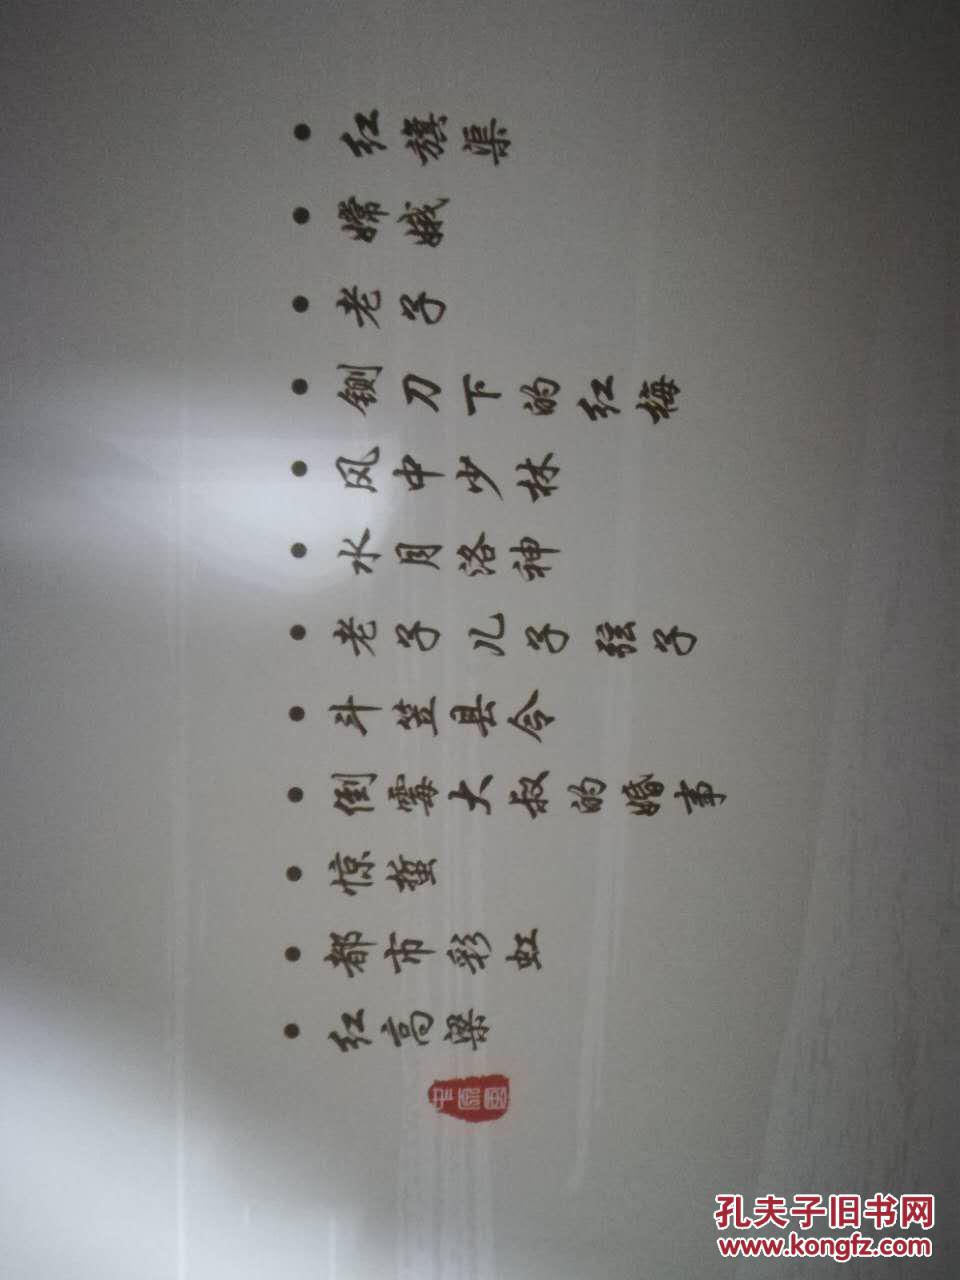 • 红旗渠
• 嫦娥
• 老子
• 铡刀下的红梅
• 风中少林
• 水月洛神
• 老子儿子弦子
• 斗笠县令
• 倒霉大叔的婚事
• 惊蛰
• 都市彩虹
• 红高粱
孔夫子旧书网
www.kongfz.com